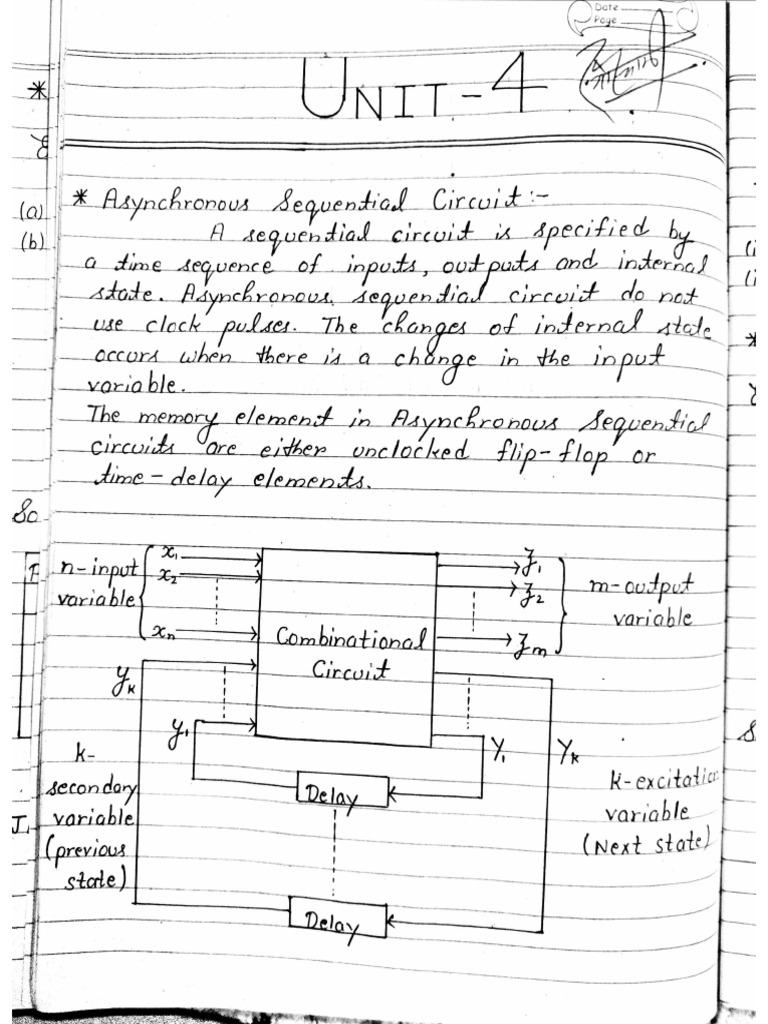 Date
Page
UNIT-4
* Asynchronous Sequential Circuit :-
A sequential circuit is specified by
a time sequence of inputs, outputs and internal
state. Asynchronous sequential circuit do not
use clock pulses. The changes of internal state
occurs when there is a change in the input
variable.
The memory element in Asynchronous Sequential
circuits are either unclocked flip-flop or
time-delay elements.
n-input
variable
x₁
x₂
xₙ
Combinational
Circuit
z₁
z₂
zₘ
m-output
variable
yₖ
y₁
Y₁
Yₖ
k-
secondary
variable
(previous
state)
Delay
Delay
k-excitation
variable
(Next state)
*
(a)
(b)
So